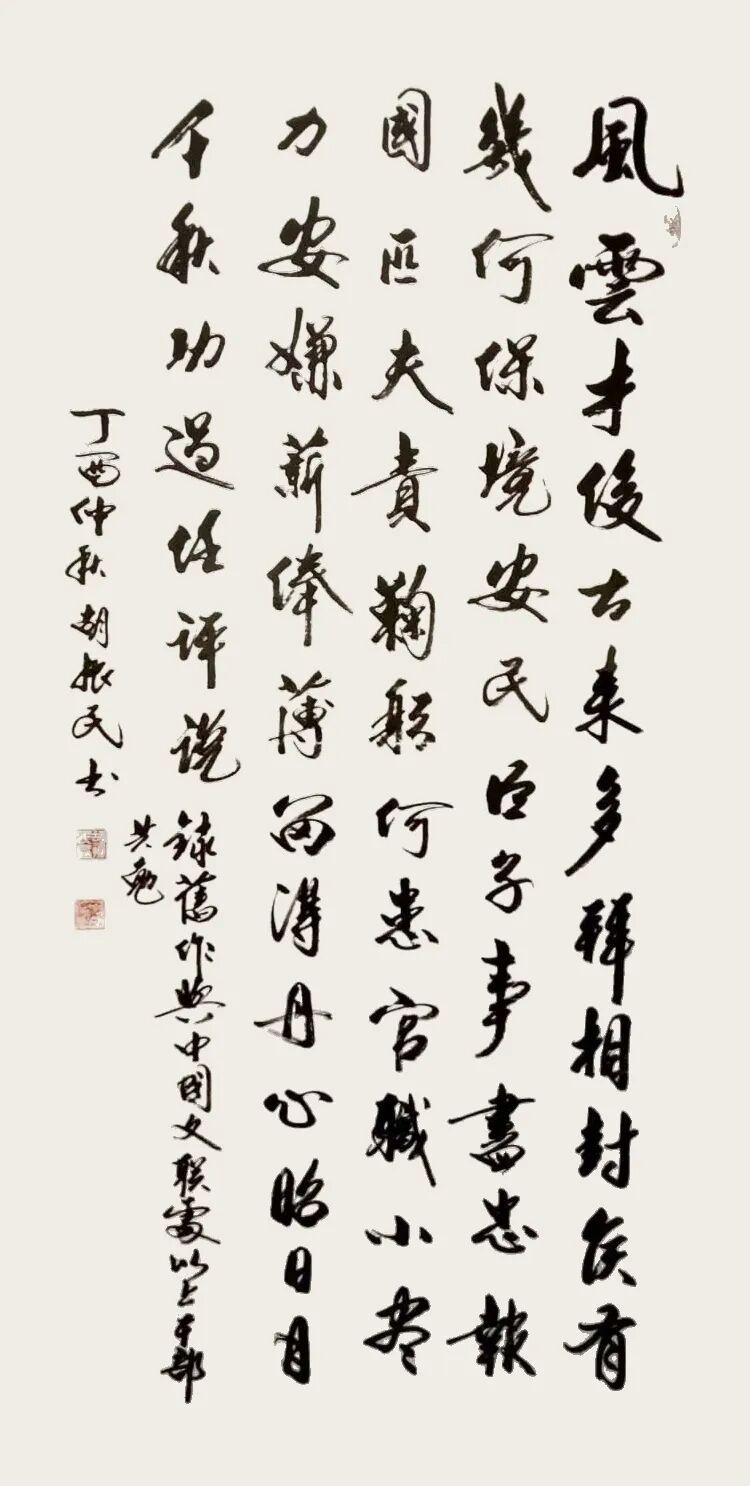 風雲才俊古来多拜相封侯有
幾何保境安民臣子事盡忠報
國匹夫責鞠躬何患官職小尽
力安嫌薪俸薄留得丹心昭日月
千秋功過任評説 録舊作與中國文联處以上干部
共勉
丁酉仲秋胡振民书